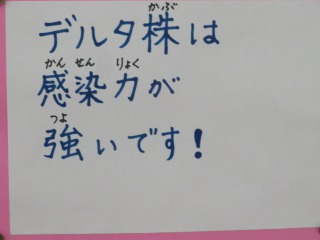 かぶ
デルタ株は
かん せん りょく
感染力が
つよ
強いです!